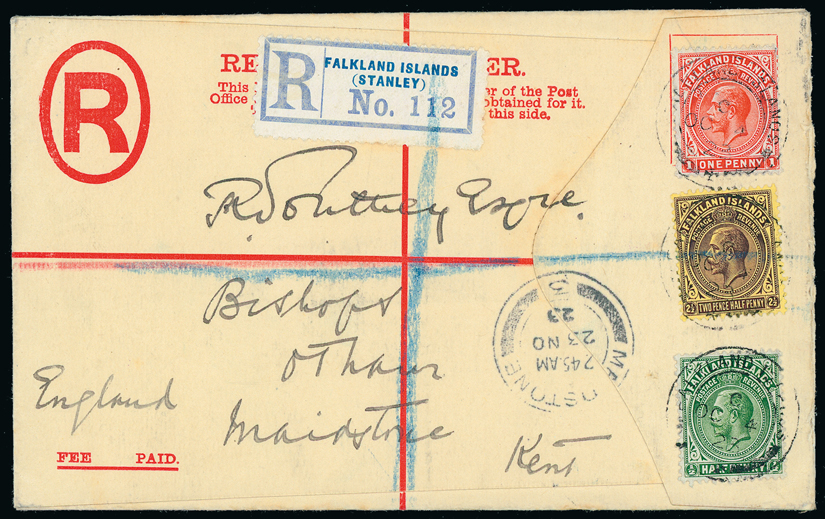 R
RE
ER.
This
er of the Post
Office
obtained for it.
this side.
R
FALKLAND ISLANDS
(STANLEY)
No. 112
FALKLAND ISLANDS
POSTAGE REVENUE
1 ONE PENNY 1
R. Southey Esqre.
FALKLAND ISLANDS
POSTAGE REVENUE
2½ TWO PENCE HALF PENNY 2½
Bishops
Otham
Maidstone
Kent
England
MAIDSTONE
7 45 AM
23 NO
23
FALKLAND ISLANDS
POSTAGE REVENUE
½ HALF PENNY ½
FEE PAID.